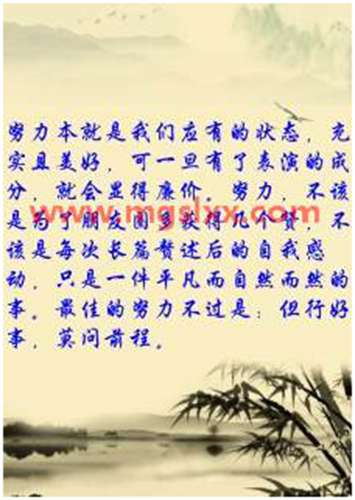 努力本就是我们应有的状态，充
实且美好，可一旦有了表演的成
分，就会显得廉价。努力，不该
是为了朋友圈多获得几个赞，不
该是每次长篇赘述后的自我感
动，只是一件平凡而自然而然的
事。最佳的努力不过是：但行好
事，莫问前程。